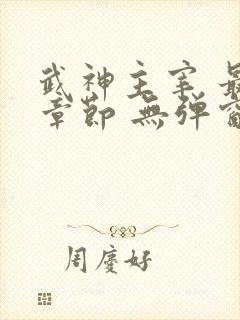 武神主宰 最
章節 無彈窗
周慶好